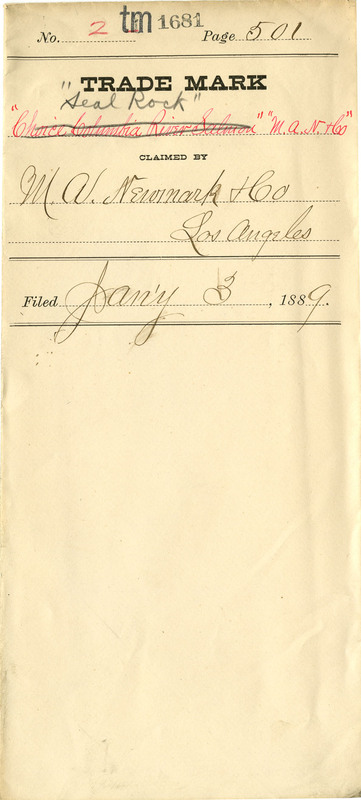 No. 2 tm 1681 Page 501
TRADE MARK
"Seal Rock"
"Choice Columbia River Salmon" "M. A. N. & Co"
CLAIMED BY
M. A. Newmark & Co
Los Angeles
Filed Jan'y 3, 1889.